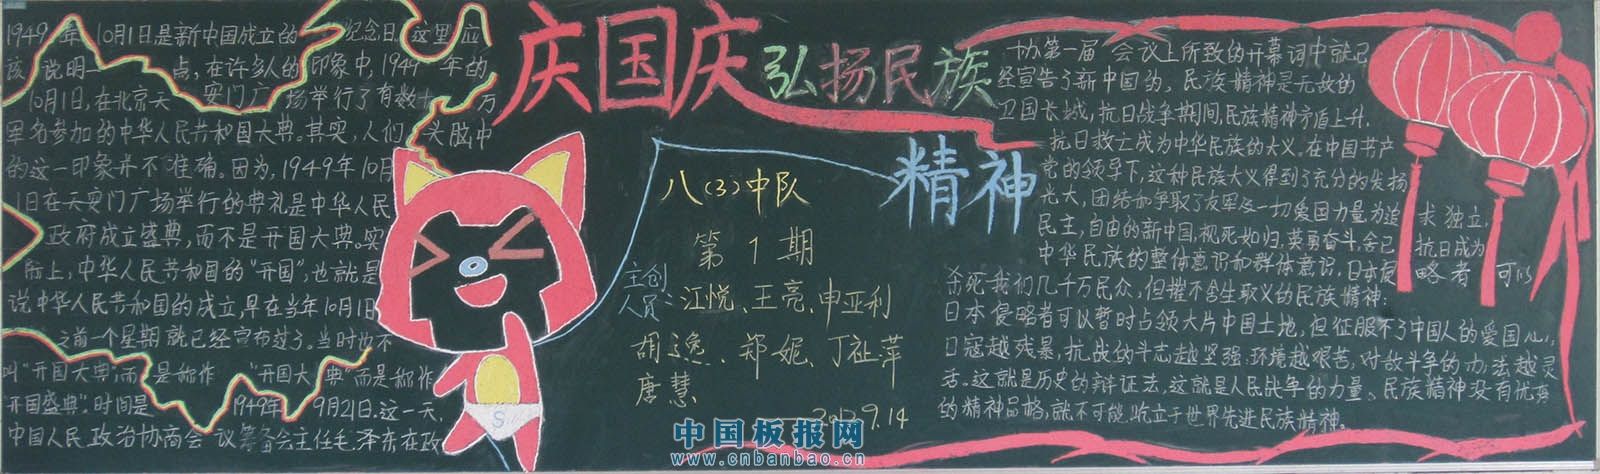 庆国庆 弘扬民族
精神
1949年10月1日是新中国成立的纪念日。这里应
该说明一点,在许多人的印象中,1949年的
10月1日,在北京天安门广场举行了有数十万
军名参加的中华人民共和国大典。其实,人们头脑中
的这一印象并不准确。因为,1949年10月
1日在天安门广场举行的典礼是中华人民
政府成立盛典,而不是开国大典。实
际上,中华人民共和国的“开国”,也就是
说中华人民共和国的成立,早在当年10月1日
之前一个星期就已经宣布过了。当时也不
叫“开国大典”,而是称作“开国大典”而是称作
“开国盛典”。时间是1949年9月21日.这一天,
中国人民政治协商会议筹备会主任毛泽东在政
八(3)中队
第1期
主创人员:江悦、王亮、申亚利
胡逸、郑妮、丁祉萍
唐慧
2012.9.14
十办第一届会议上所致的开幕词中就已
经宣告了新中国的,民族精神是无敌的
卫国长城,抗日战争期间,民族精神矛盾上升,
抗日救亡成为中华民族的大义。在中国共产
党的领导下,这种民族大义得到了充分的发扬
光大,团结和争取了友军及一切爱国力量为追求独立,
民主,自由的新中国,视死如归,英勇奋斗,舍己抗日成为
中华民族的整体意识和群体意识,日本侵略者可以
杀死我们几千万民众,但摧不舍生取义的民族精神:
日本侵略者可以暂时占领大片中国土地,但征服不了中国人的爱国心;
日寇越残暴,抗战的斗志越坚强;环境越艰苦,对敌斗争的办法越灵
活。这就是历史的辩证法,这就是人民战争的力量。民族精神没有优秀
的精神品格,就不可能屹立于世界先进民族精神。
S
中国板报网
www.cnbanbao.cn